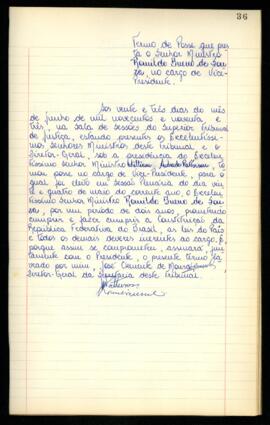 36
Termo de Posse que pres
ta o Senhor Ministro
Romildo Bueno de Sou
za, no cargo de Vice-
Presidente.
Aos vinte e três dias do mês
de junho de mil novecentos e noventa e
três, na sala de sessões do Superior Tribunal
de Justiça, estando presentes os Excelentíssi-
mos Senhores Ministros deste Tribunal e o
Diretor-Geral, sob a presidência do Excelen
tíssimo Senhor Ministro William Patterson, to
mou posse no cargo de Vice-Presidente, para o
qual foi eleito em Sessão Plenária do dia vin
te e quatro de maio do corrente ano, o Excelen
tíssimo Senhor Ministro Romildo Bueno de Sou
za, por um período de dois anos, prometendo
cumprir e fazer cumprir a Constituição da
República Federativa do Brasil, as leis do País
e todos os demais deveres inerentes ao cargo. E,
porque assim se comprometeu, assinará, jun
tamente com o Presidente, o presente termo la
vrado por mim, José Clemente de Moura,
Diretor-Geral da Secretaria deste Tribunal.